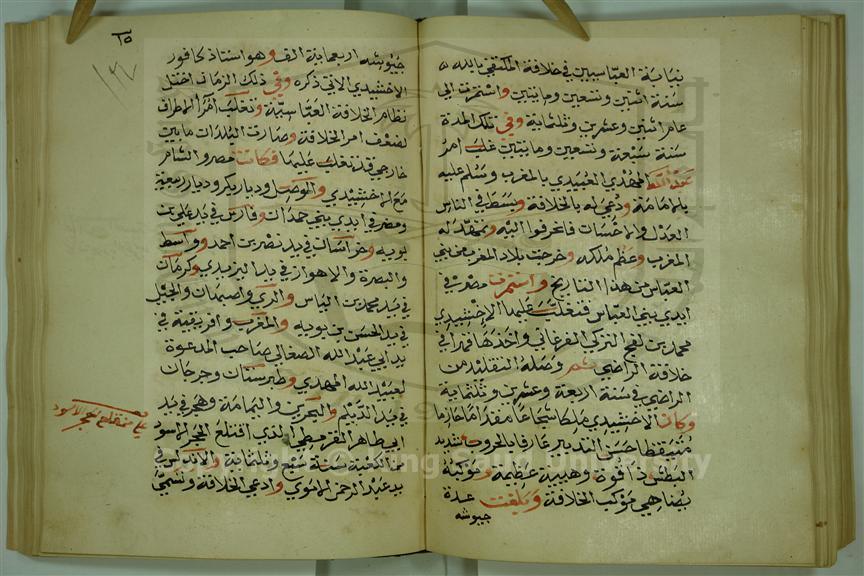 نيابة العباسيين في خلافة المكتفي بالله
سنة اثنين وتسعين ومايتين واستمرت الى
عام اثنين وعشرين وثلثماية وفي تلك المدة
سنة سبعة وتسعين ومايتين غلب امر
عبد الله المهدي العبيدي بالمغرب وسلم عليه
بالامامة ودعي له بالخلافة وبسط في الناس
العدل والاحسان فانحرفوا اليه وتمهد له
المغرب وعظم ملكه وخرجت بلاد المغرب من بني
العباس من هذا التاريخ واستمرت مصر في
ايدي بني العباس فتغلب عليها الاخشيدي
محمد بن طغج التركي الفرغاني واخذها قهرا في
خلافة الراضي ثم وصله التقليد من
الراضي في سنة اربعة وعشرين وثلثماية
وكان الاخشيدي ملكا شجاعا مقداما حازما
متيقظا حسن التدبير عارفا بالحروب شديد
البطش ذا قوة وهيبة عظيمة وموكبه
يضاهي موكب الخلافة وبلغت عدة
جيوشه
١٥
جيوشه اربعماية الف وهو استاذ كافور
الاخشيدي الاتي ذكره وفي ذلك الزمان اختل
نظام الخلافة العباسية وتغلب امرا الاطراف
لضعف امر الخلافة وصارت البلدان مابين
خارجي قد تغلب عليها فكانت مصر والشام
مع الاخشيدي والموصل وديار بكر وديار ربيعة
ومضر في ايدي بني حمدان وفارس في يد علي بن
بويه وخراسان في يد نصر بن احمد وواسط
والبصرة والاهواز في يد البزيدي وكرمان
في يد محمد بن الياس والري واصبهان والجبل
في يد الحسن بن بويه والمغرب وافريقية في
يد ابي عبد الله الصغالي صاحب الدعوة
لعبيد الله المهدي وطبرستان وجرجان
في يد الديلم والبحرين واليمامة وهجر في يد
ابي طاهر القرمطي الذي اقتلع الحجر الاسود
من الكعبة سنة سبع وثلثماية والاندلس في
يد عبد الرحمن الاموي وادعي الخلافة وتسمي
قلع حجر الاسود
Copyright © King Saud University